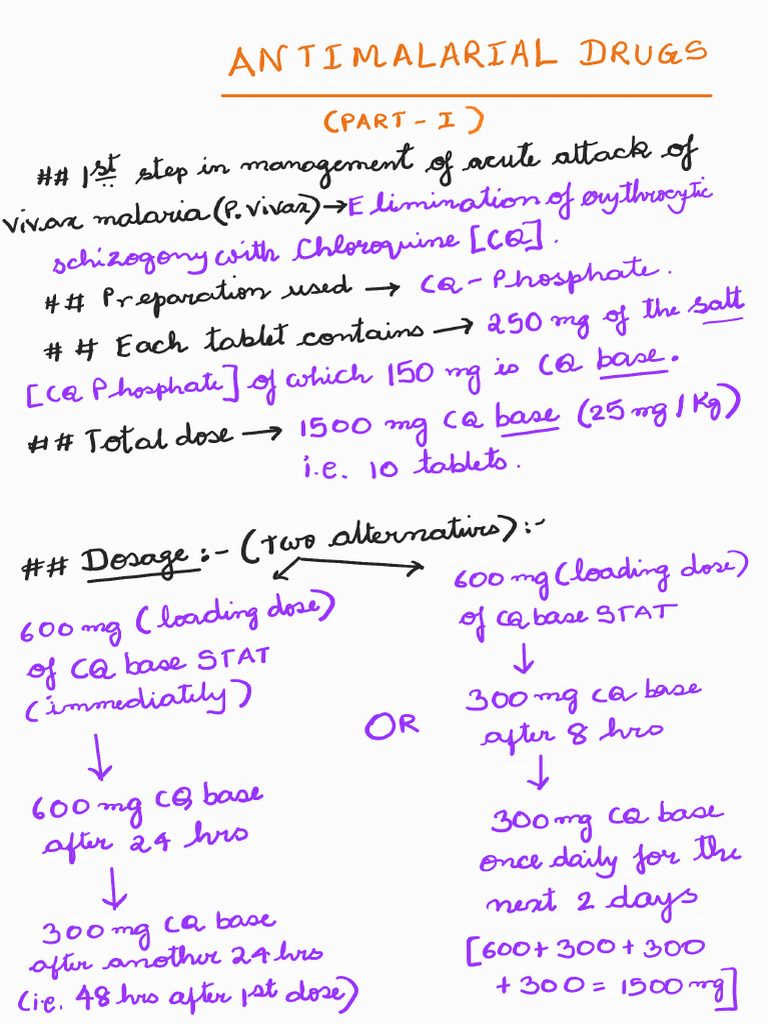 ANTIMALARIAL DRUGS
(PART - I)
## 1st step in management of acute attack of
vivax malaria (P. vivax) → Elimination of erythrocytic
schizogony with Chloroquine [CQ].
## Preparation used → CQ-Phosphate.
## Each tablet contains → 250 mg of the salt
[CQ Phosphate] of which 150 mg is CQ base.
## Total dose → 1500 mg CQ base (25 mg/Kg)
i.e. 10 tablets.
## Dosage :- (Two alternativs) :-
600 mg (loading dose)
of CQ base STAT
(immediately)
↓
600 mg CQ base
after 24 hrs
↓
300 mg CQ base
after another 24 hrs
(i.e. 48 hrs after 1st dose)
OR
600 mg (loading dose)
of CQ base STAT
↓
300 mg CQ base
after 8 hrs
↓
300 mg CQ base
once daily for the
next 2 days
[600 + 300 + 300
+ 300 = 1500 mg]